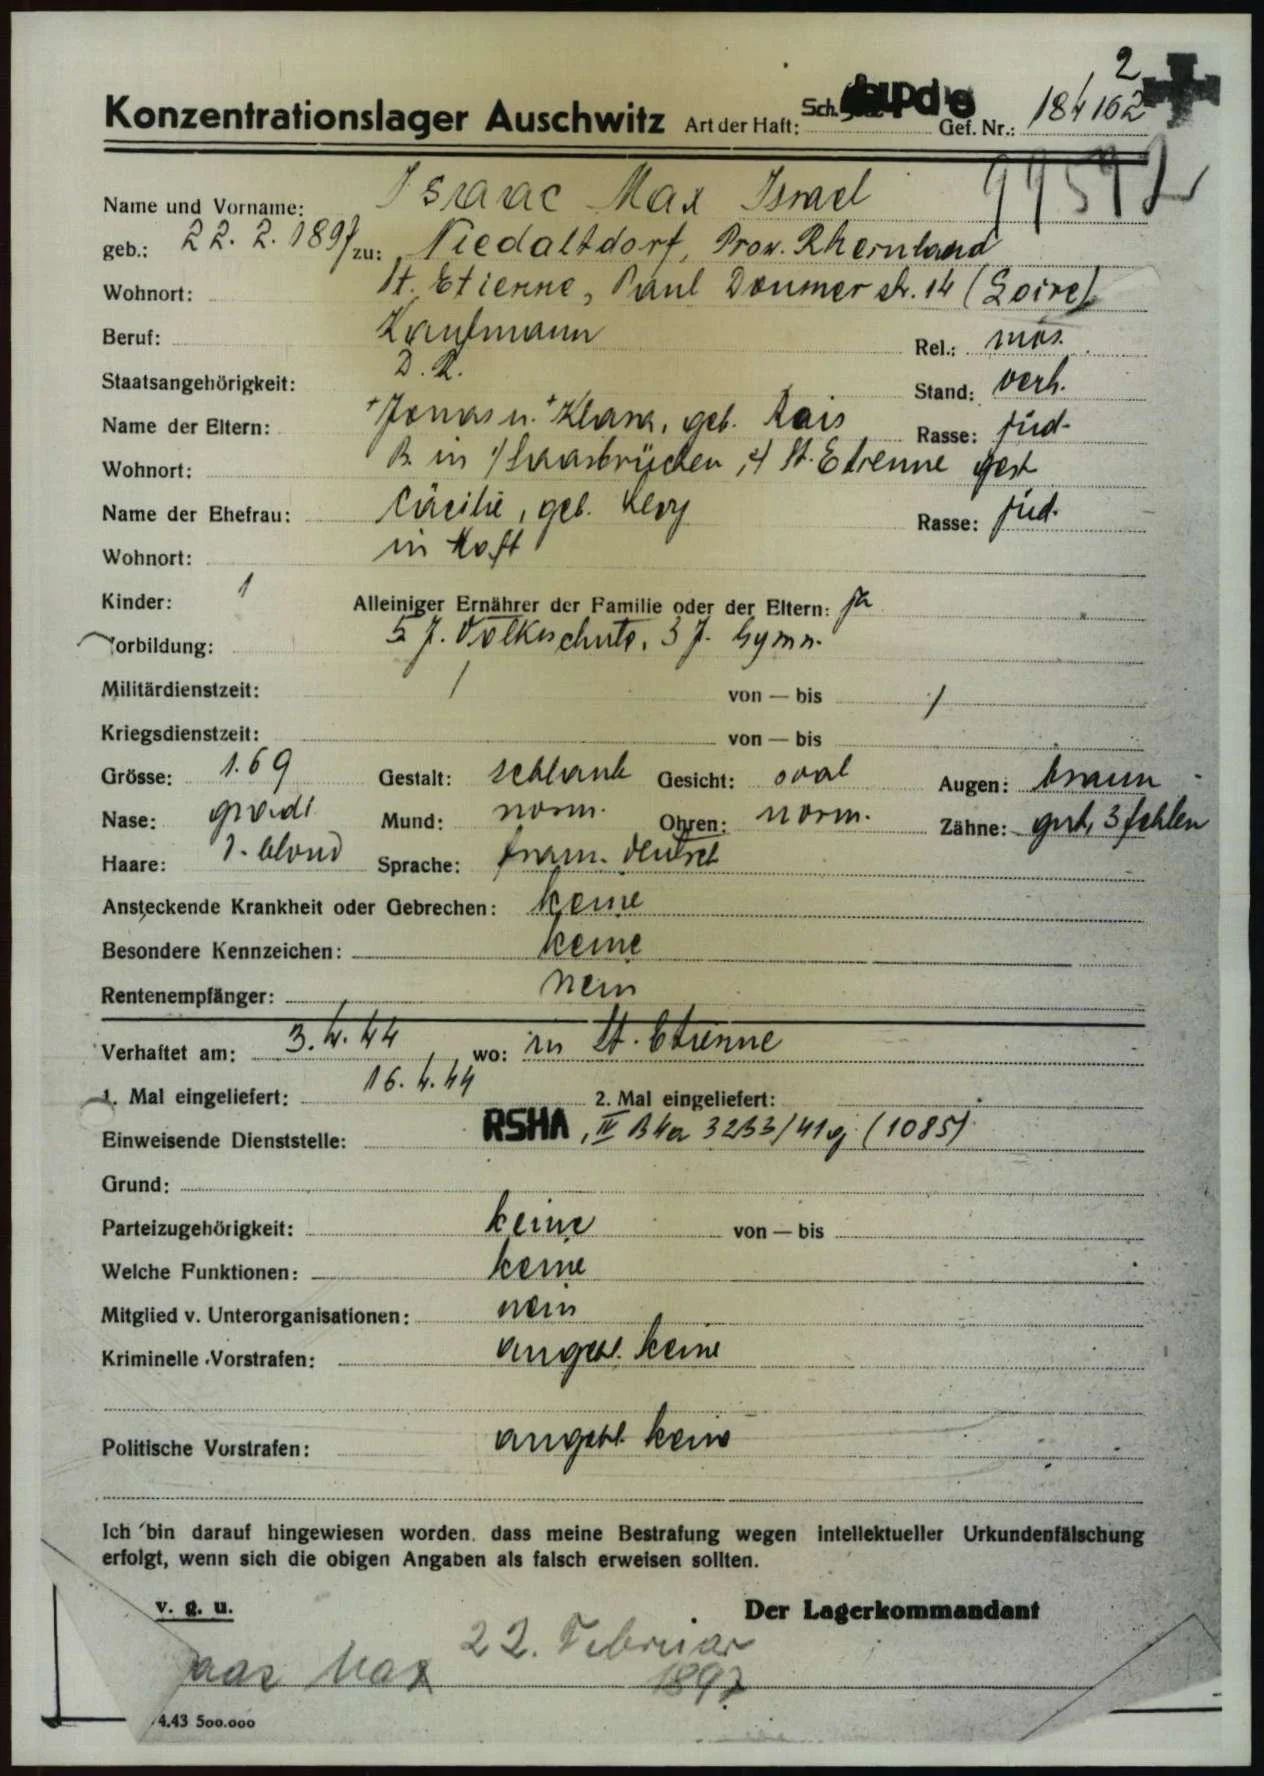 2
Konzentrationslager Auschwitz Art der Haft: Sch. Gef. Nr.: 184162
Name und Vorname: Isaac Max Israel 99592
geb.: 22. 2. 1897 zu: Niedaltdorf, Prov. Rheinland
Wohnort: St. Etienne, Paul Doumer str. 14 (Loire)
Beruf: Kaufmann Rel.: mos.
Staatsangehörigkeit: D. R. Stand: verh.
Name der Eltern: +Jonas u. +Klara, geb. Kais Rasse: jüd.
Wohnort: in Saarbrücken, St. Etienne gest
Name der Ehefrau: Cäcilie, geb. Levy Rasse: jüd.
Wohnort: in Haft
Kinder: 1 Alleiniger Ernährer der Familie oder der Eltern: ja
Vorbildung: 5 J. Volksschule, 3 J. Gymn.
Militärdienstzeit: / von — bis /
Kriegsdienstzeit: von — bis
Grösse: 1.69 Gestalt: schlank Gesicht: oval Augen: braun
Nase: grade Mund: norm. Ohren: norm. Zähne: gut, 3 fehlen
Haare: d. blond Sprache: franz. deutsch
Ansteckende Krankheit oder Gebrechen: keine
Besondere Kennzeichen: keine
Rentenempfänger: nein
Verhaftet am: 3. 4. 44 wo: in St. Etienne
1. Mal eingeliefert: 16. 4. 44 2. Mal eingeliefert:
Einweisende Dienststelle: RSHA, IV B4a 3233/41g (1085)
Grund:
Parteizugehörigkeit: keine von — bis
Welche Funktionen: keine
Mitglied v. Unterorganisationen: nein
Kriminelle Vorstrafen: angebl. keine
Politische Vorstrafen: angebl. keine
Ich bin darauf hingewiesen worden, dass meine Bestrafung wegen intellektueller Urkundenfälschung
erfolgt, wenn sich die obigen Angaben als falsch erweisen sollten.
v. g. u. Der Lagerkommandant
22. Februar
Max 1897
4.43 500.000